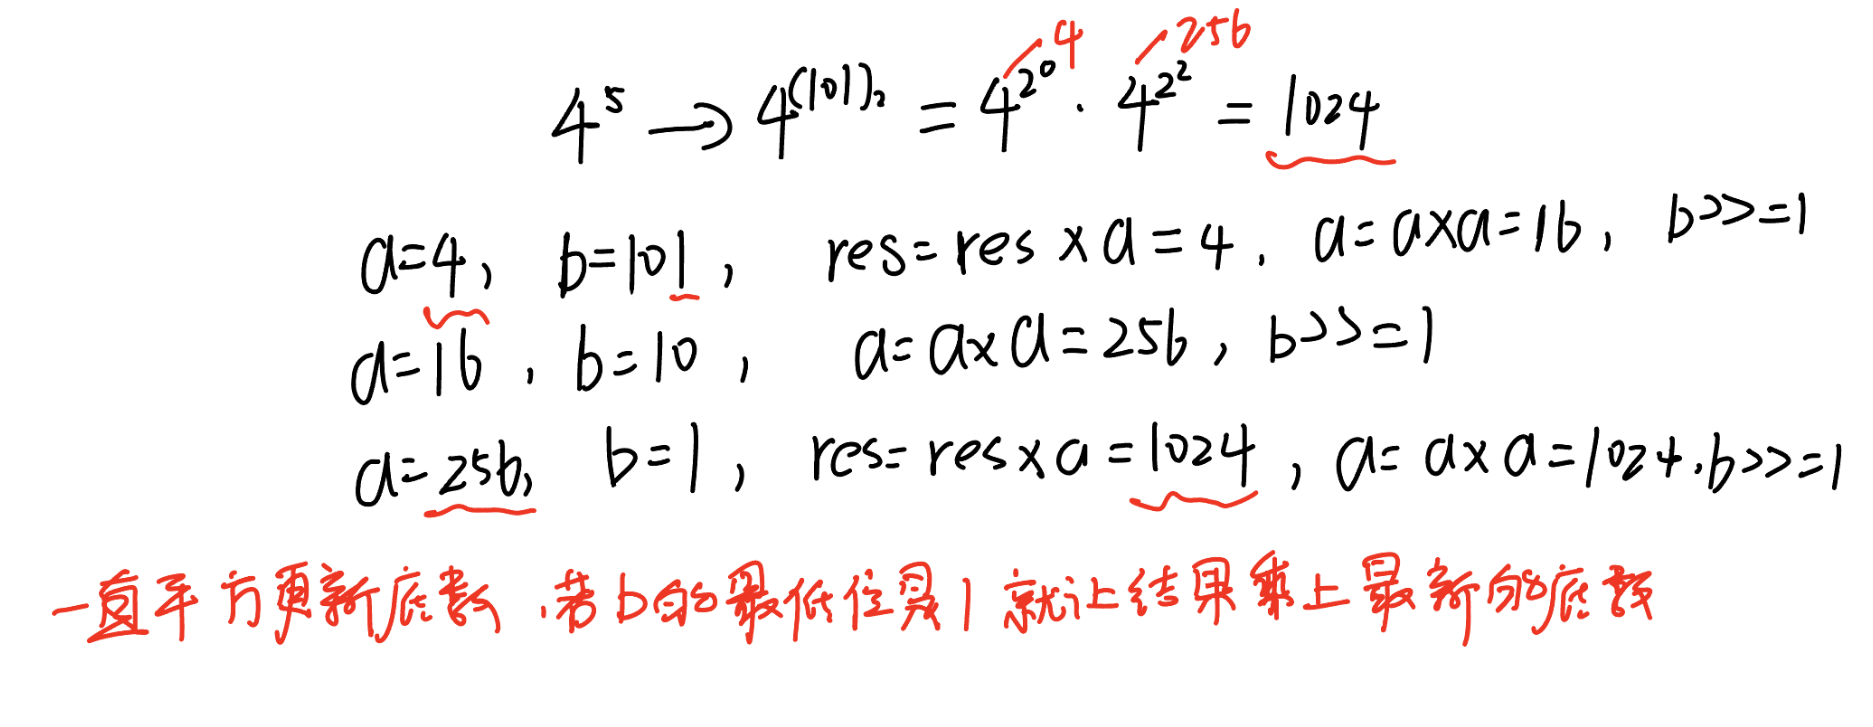 4 256
4⁵ → 4^(101)₂ = 4^2⁰ · 4^2² = 1024
a=4, b=101, res=res×a=4, a=a×a=16, b>>=1
a=16, b=10, a=a×a=256, b>>=1
a=256, b=1, res=res×a=1024, a=a×a=1024, b>>=1
一直平方更新底数,若b的最低位是1就让结果乘上最新的底数